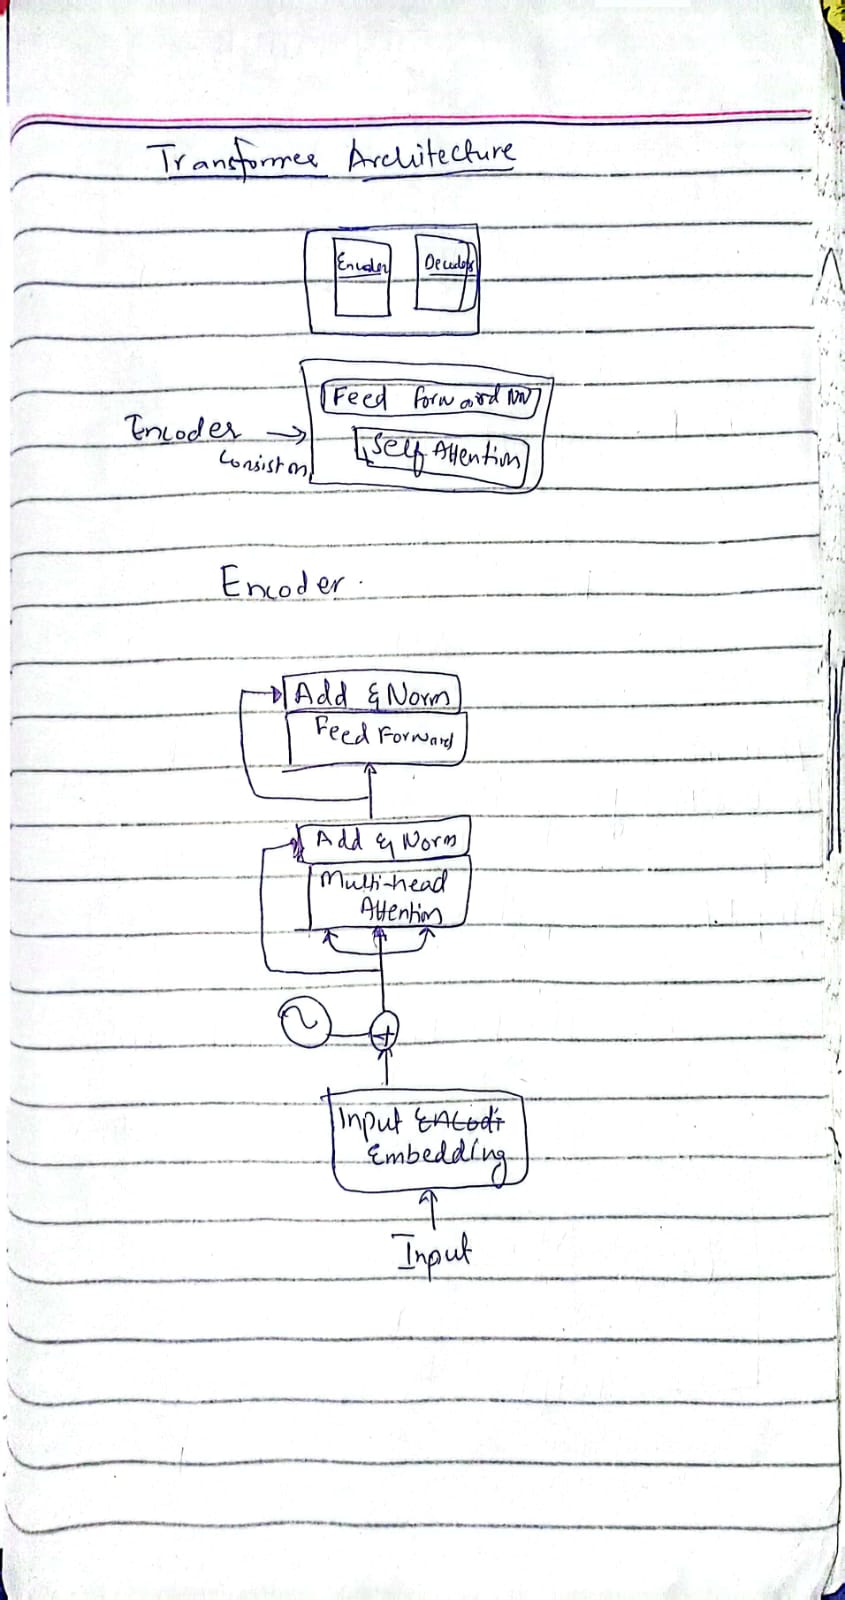 Transformer Architecture
Encoder
Decoder
Feed Forward NN
Encoder →
Consist on
Self Attention
Encoder.
Add & Norm
Feed Forward
Add & Norm
Multi-head
Attention
+
Input Encodi
Embedding
Input